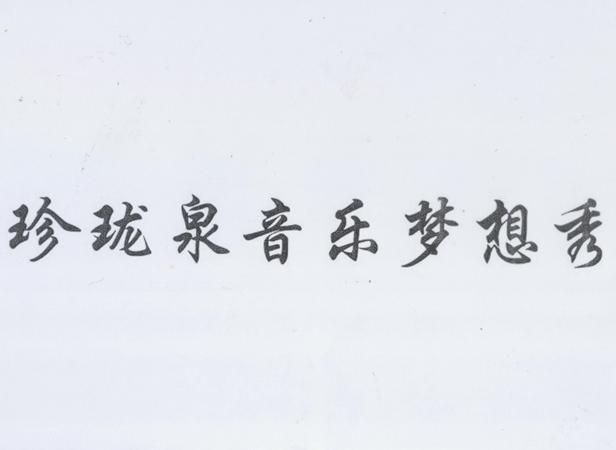 珍珑泉音乐梦想秀